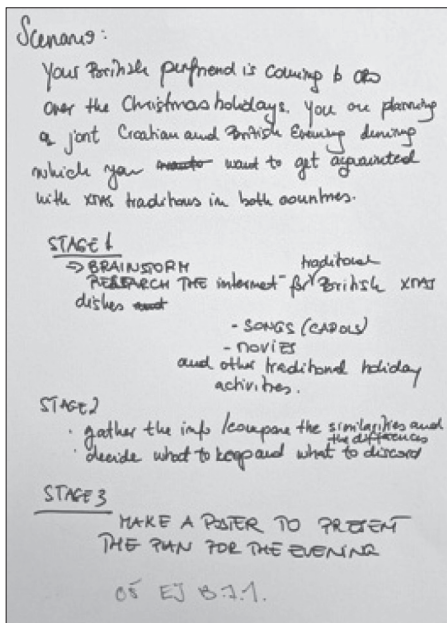 Scenario:
Your British penfriend is coming to CRO
over the Christmas holidays. You are planning
a joint Croatian and British Evening during
which you want to get aquainted
with XMAS traditions in both countries.
STAGE 1
⇒ BRAINSTORM
traditional
RESEARCH THE internet for British XMAS
dishes
- SONGS (CAROLS)
- MOVIES
and other traditional holiday
activities.
STAGE 2
· gather the info / compare the similarities and
the differences
· decide what to keep and what to discard
STAGE 3
MAKE A POSTER TO PRESENT
THE PLAN FOR THE EVENING
OŠ EJ B.7.1.